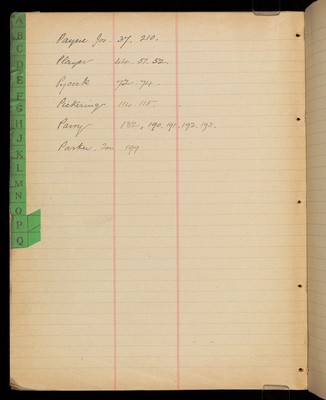 A
B
C
D
E
F
G
H
J
K
L
M
N
O
P
Q
Payne Jos. 37. 210.
Player 44. 51. 52.
72. 74.
Pickering 114. 115.
Parry 182, 190. 191. 192. 193.
Parker. 199